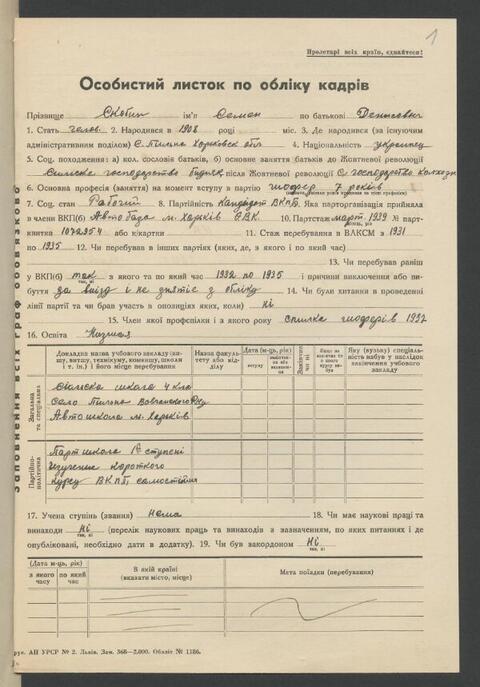 1
Пролетарі всіх країн, єднайтеся!
Особистий листок по обліку кадрів
Прізвище Скобин ім'я Семен по батькові Денисович
1. Стать челов. 2. Народився в 1908 році міс. 3. Де народився (за існуючим
адміністративним поділом) С. Пильна Харковск обл 4. Національність украинец
5. Соц. походження: а) кол. сословіє батьків, б) основне заняття батьків до Жовтневої революції
Сильске господарство будняк, після Жовтневої революції С. господарство колхозн
6. Основна професія (заняття) на момент вступу в партію шофер 7 років
7. Соц. стан Рабочий 8. Партійність Кандідат ВКПб. Яка парторганізація прийняла
в члени ВКП(б) Авто База м. Харків 10. Партстаж март 1939 № парт-
квитка 1072954 або к/картки 11. Стаж перебування в ВЛКСМ з 1931
по 1935 12. Чи перебував в інших партіях (яких, де, з якого і по який час)
13. Чи перебував раніш
у ВКП(б) так з якого та по який час 1932 по 1935 і причини виключення або ви-
так, ні
буття за виїзд і не зняття з обліку 14. Чи були хитання в проведенні
лінії партії та чи брав участь в опозиціях яких, коли) ні
15. Член якої профспілки і з якого року спилка шоферів 1932
16. Освіта Низшая
Заповнення всіх граф обов'язково
Докладна назва учбового закладу (ви-
шу, витшу, технікуму, комвишу, школи
і т. ін.) і його місце перебування)
Назва факуль-
тету або від-
ділу
Дата (м-ць, рік)
вступу
Яку (вузьку) спеціаль-
ність набув у наслідок
закінчення учбового
закладу
Загальна
та спеціальна
сильска школа 4 кла
село Пильна Вовчанского р-ну
Автошкола м. Харків
Партійно-
політична
Парт школа ступені
Изучение короткого
курсу ВКПб, самостоятия
17. Учена ступінь (звання) Нема 18. Чи має наукові праці та
винаходи Ні (перелік наукових праць та винаходів з зазначенням, по яких питаннях і де
так, ні
опубліковані, необхідно дати в додатку). 19. Чи був закордоном Ні
так, ні
(Дата м-ць, рік)
з якого часу
по який час
В якій країні
(вказати місто, місце)
Мета поїздки (перебування)
рук. АП УРСР № 2. Львів. Зам. 368—2.000. Обліт № 1186.